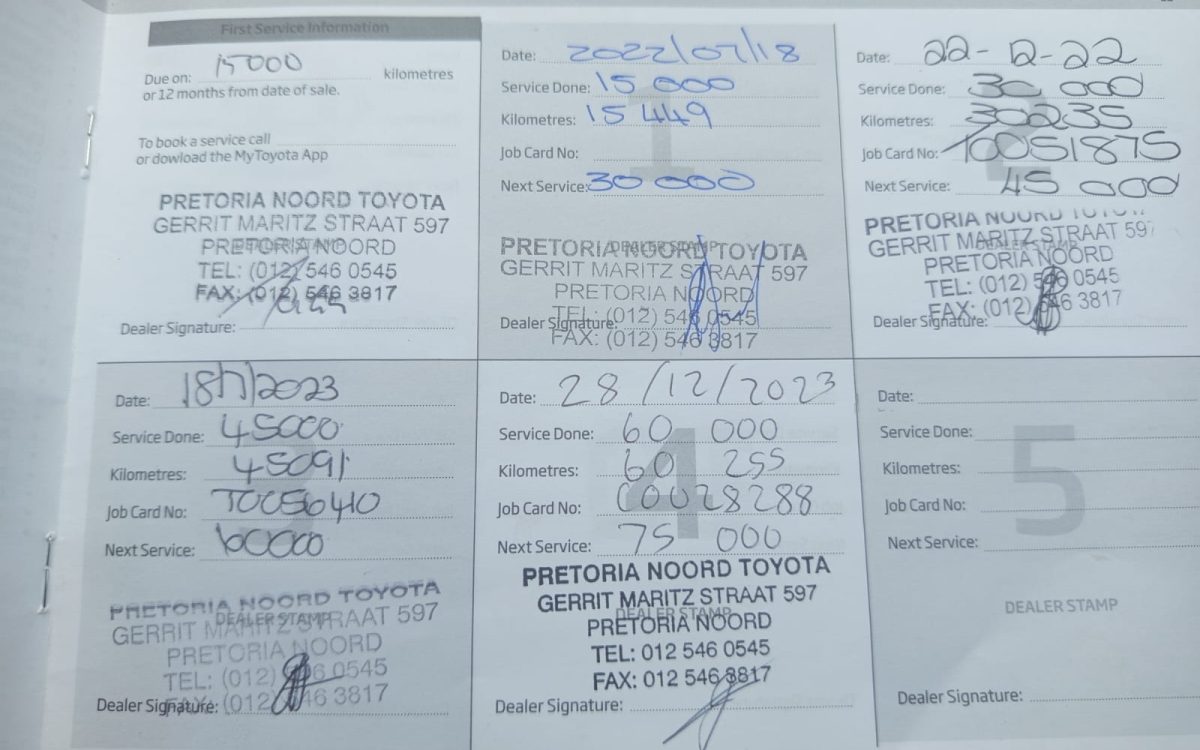 First Service Information
Due on: 15000 kilometres
or 12 months from date of sale.
To book a service call
or dowload the MyToyota App
PRETORIA NOORD TOYOTA
GERRIT MARITZ STRAAT 597
PRETORIA NOORD
TEL: (012) 546 0545
FAX: (012) 546 3817
Dealer Signature:
1
Date: 2022/07/18
Service Done: 15 000
Kilometres: 15 449
Job Card No:
Next Service: 30 000
DEALER STAMP
PRETORIA NOORD TOYOTA
GERRIT MARITZ STRAAT 597
PRETORIA NOORD
TEL: (012) 546 0545
Dealer Signature:
FAX: (012) 546 3817
2
Date: 22-12-22
Service Done: 30 000
Kilometres: 30235
Job Card No: 10051875
Next Service: 45 000
PRETORIA NOORD TOYOTA
GERRIT MARITZ STRAAT 597
DEALER STAMP
PRETORIA NOORD
TEL: (012) 546 0545
FAX: (012) 546 3817
Dealer Signature:
3
Date: 18/7/2023
Service Done: 45000
Kilometres: 45091
Job Card No:
Next Service: 60000
PRETORIA NOORD TOYOTA
GERRIT MARITZ STRAAT 597
DEALER STAMP
PRETORIA NOORD
TEL: (012) 546 0545
FAX: (012) 546 3817
Dealer Signature:
4
Date: 28/12/2023
Service Done: 60 000
Kilometres: 60 255
Job Card No: C0028288
Next Service: 75 000
PRETORIA NOORD TOYOTA
GERRIT MARITZ STRAAT 597
DEALER STAMP
PRETORIA NOORD
TEL: 012 546 0545
FAX: 012 546 3817
Dealer Signature:
5
Date:
Service Done:
Kilometres:
Job Card No:
Next Service:
DEALER STAMP
Dealer Signature: